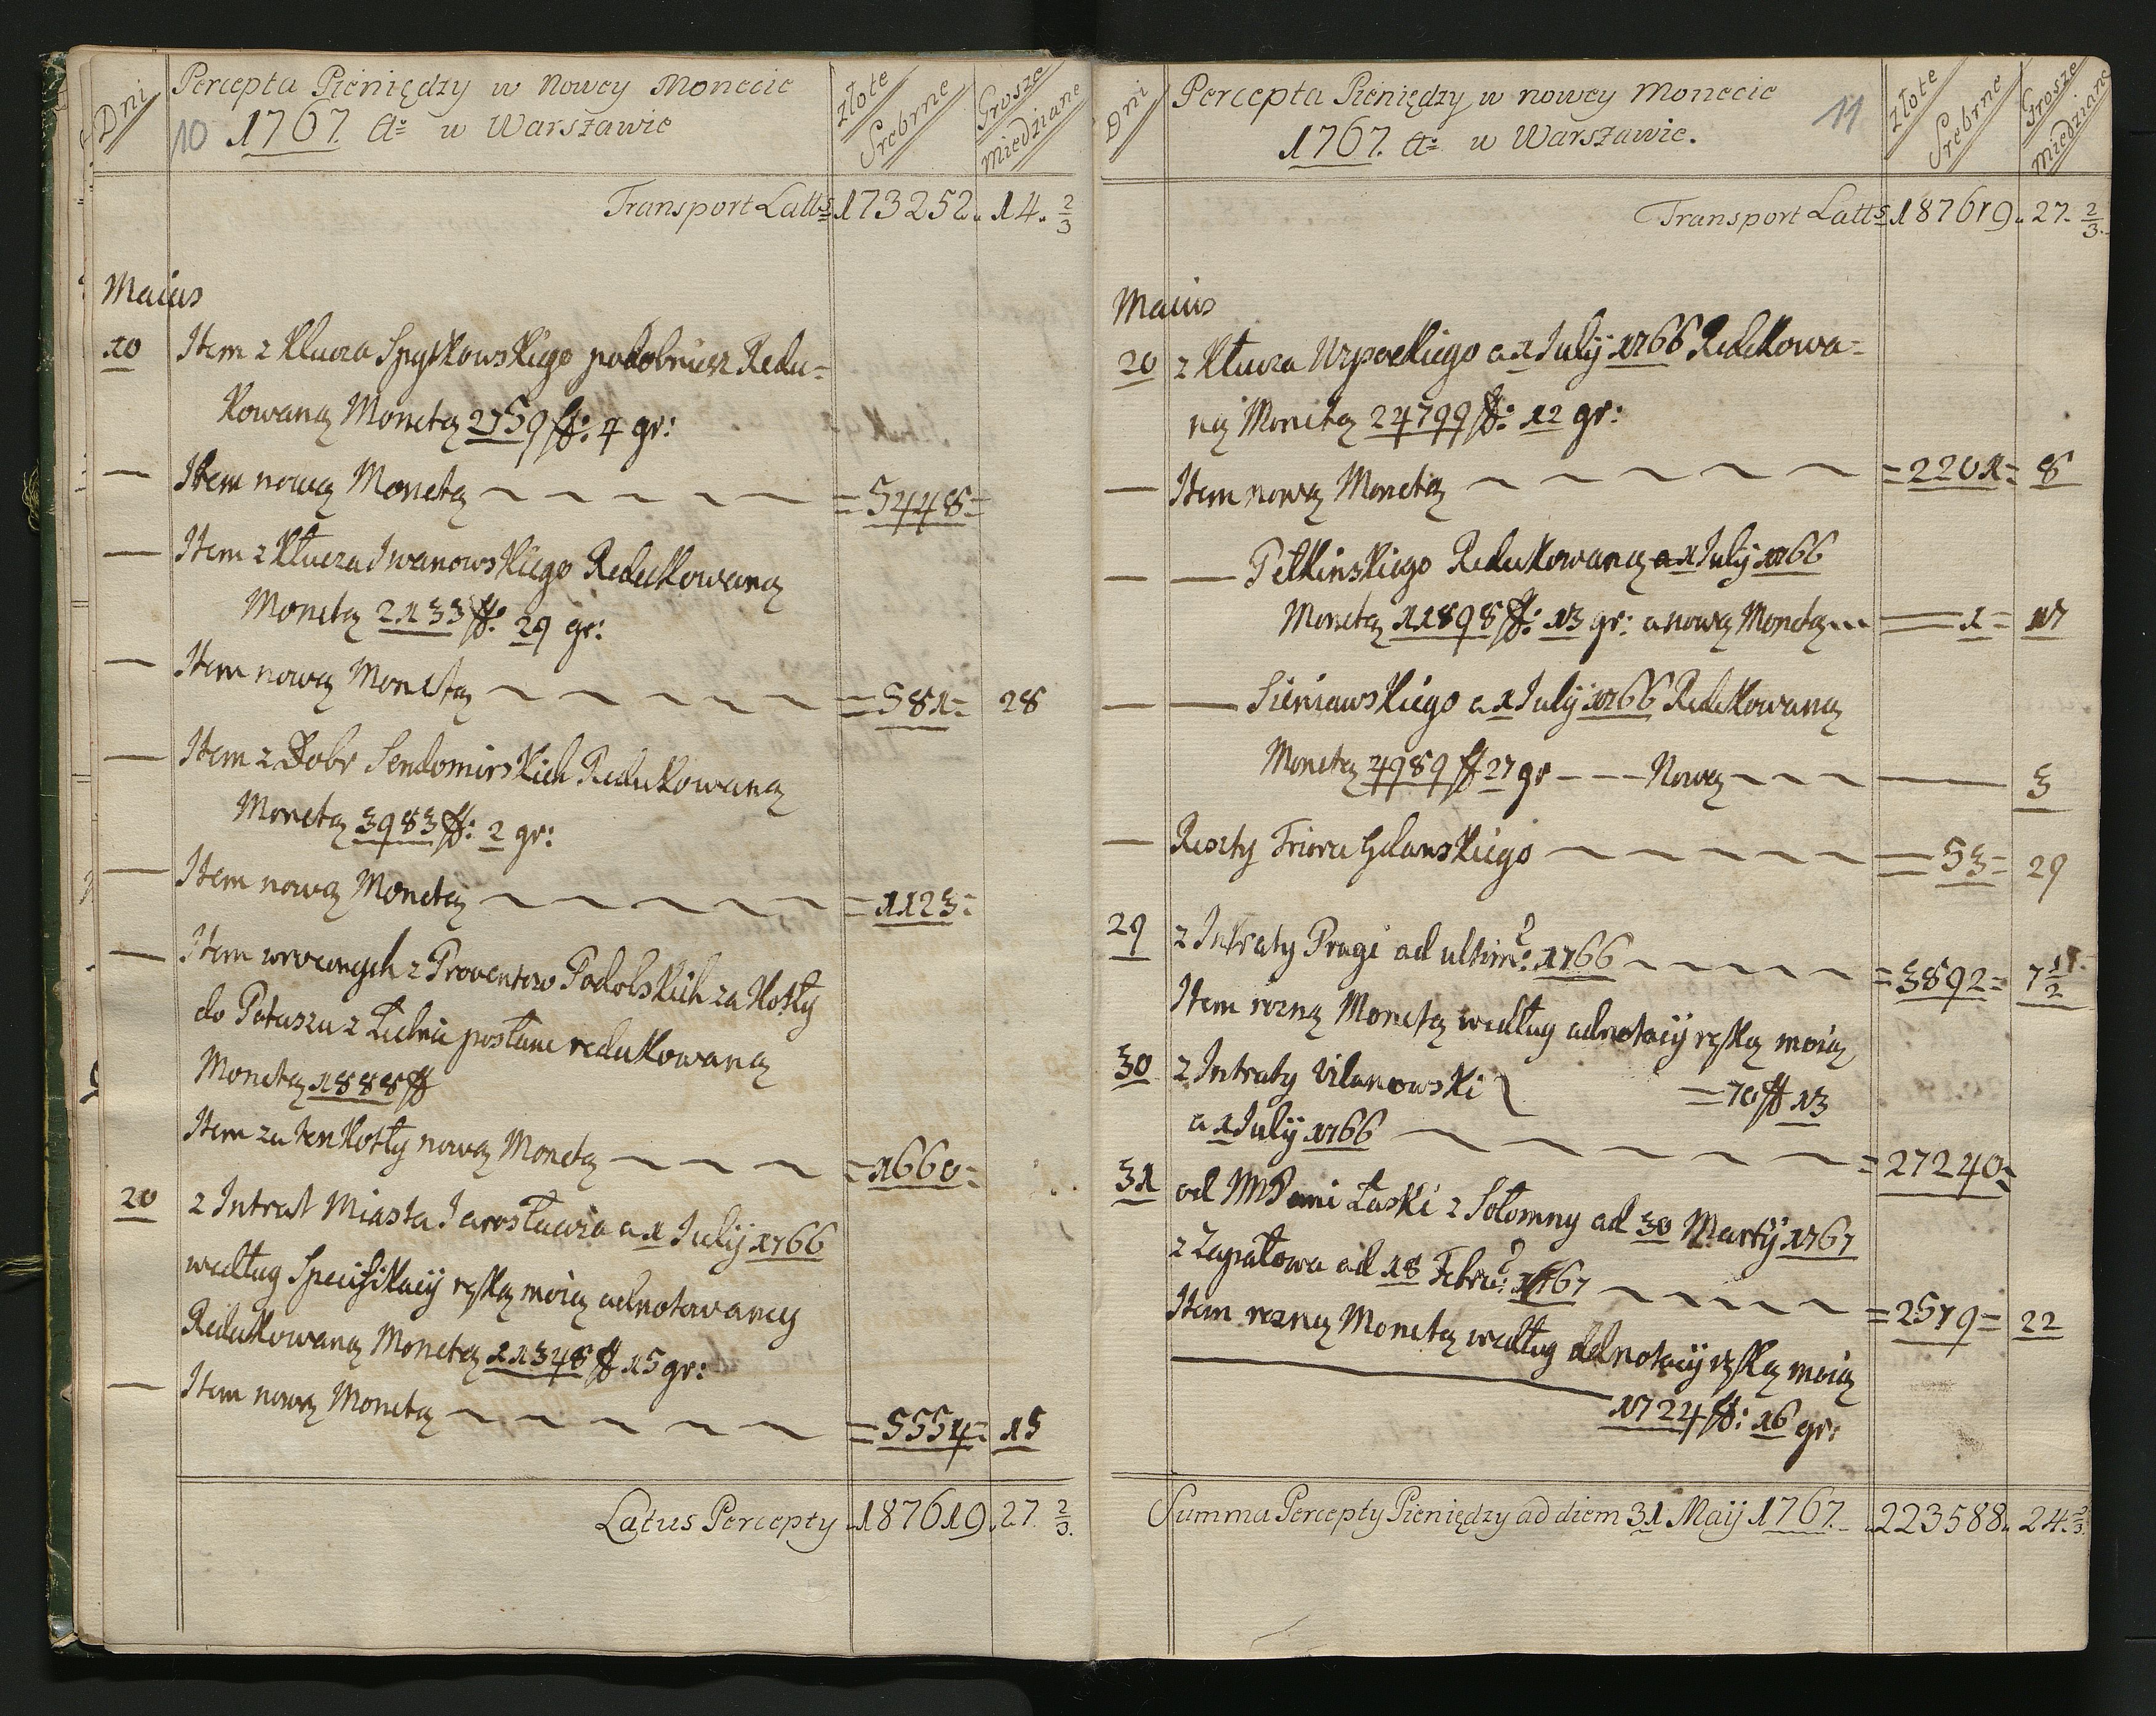 Dni
Percepta Pieniędzy w Nowey Monecie
10 1767. Ao w Warszawie
Złote Srebrne
Grosze Miedziane
Transport Latts 173252. 14. 2/3
Maius
10 Item z Klucza podobniesz Redu=
kowaną Monetą 2759 ff: 4 gr:
— Item nową Monetą = 5448 =
— Item z Klucza Iwanowskiego Redukowaną
Monetą 2133 ff: 29 gr:
— Item nową Monetą = 581 = 28
— Item z Dobr Sendomirskich Redukowaną
Monetą 3983 ff: 2 gr:
— Item nową Monetą = 1123 =
— Item z Proventow Podolskich za Kotły
do Potaszu z posłane redukowaną
Monetą 1888 ff
Item za ten Kotły nową Monetą = 1660 =
20 z Intrat Miasta Jarosławia a 1 July 1766
według Specifikacij ręką moią adnotowaney
Redukowaną Monetą 11348 ff 15 gr:
— Item nową Monetą = 5554 = 15
Latus Percepty 187619. 27. 2/3.
Dni
Percepta Pieniędzy w nowey Monecie
11
1767. Ao w Warszawie.
Złote Srebrne
Grosze Miedziane
Transport Latts 187619. 27. 2/3.
Maius
20 z Klucza a 1 July 1766 Redukowa=
ną Monetą 24799 ff: 12 gr:
— Item nową Monetą = 2201 = 8
— — Pełkinskiego Redukowaną a 1 July 1766
Monetą 11898 ff: 13 gr: a nową Monetą = 1 = 17
— — Sieniawskiego a 1 July 1766 Redukowaną
Monetą 4989 ff 27 gr — — Nową — 3
— Reszty Gdanskiego = 53 = 29
29 z Intraty Pragi ad ultim: 1766 = 3892 = 7 1/2
Item rozną Monetą według adnotacij ręką moią
30 z Intraty Vilanowski = 70 ff 13
a 1 July 1766 = 27240 =
31 od Łaski z Sołomny ad 30 Martij 1767
z Zapałowa ad 18 Febru: 1767 = 2579 = 22
Item rozną Monetą według adnotacij ręką moią
1724 ff: 16 gr:
Summa Percepty Pieniędzy ad diem 31 Maij 1767. 223588. 24. 2/3